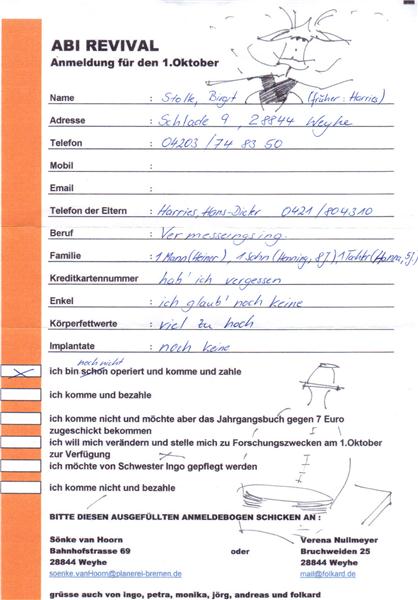 ABI REVIVAL
Anmeldung für den 1.Oktober
Name : Stolte, Birgit (früher: Harries)
Adresse : Schlade 9, 28844 Weyhe
Telefon : 04203/74 83 50
Mobil :
Email :
Telefon der Eltern : Harries, Hans-Dieter 0421/804310
Beruf : Vermessungsing.
Familie : 1 Mann (Heiner), 1 Sohn (Henning, 8J), 1 Tochter (Hanna, 5J.)
Kreditkartennummer : hab' ich vergessen
Enkel : ich glaub' noch keine
Körperfettwerte : viel zu hoch
Implantate : noch keine
noch nicht
ich bin schon operiert und komme und zahle
ich komme und bezahle
ich komme nicht und möchte aber das Jahrgangsbuch gegen 7 Euro
zugeschickt bekommen
ich will mich verändern und stelle mich zu Forschungszwecken am 1.Oktober
zur Verfügung
ich möchte von Schwester Ingo gepflegt werden
ich komme nicht und bezahle
BITTE DIESEN AUSGEFÜLLTEN ANMELDEBOGEN SCHICKEN AN :
Sönke van Hoorn Verena Nullmeyer
Bahnhofstrasse 69 oder Bruchweiden 25
28844 Weyhe 28844 Weyhe
soenke.vanHoorn@planerei-bremen.de mail@folkard.de
grüsse auch von ingo, petra, monika, jörg, andreas und folkard